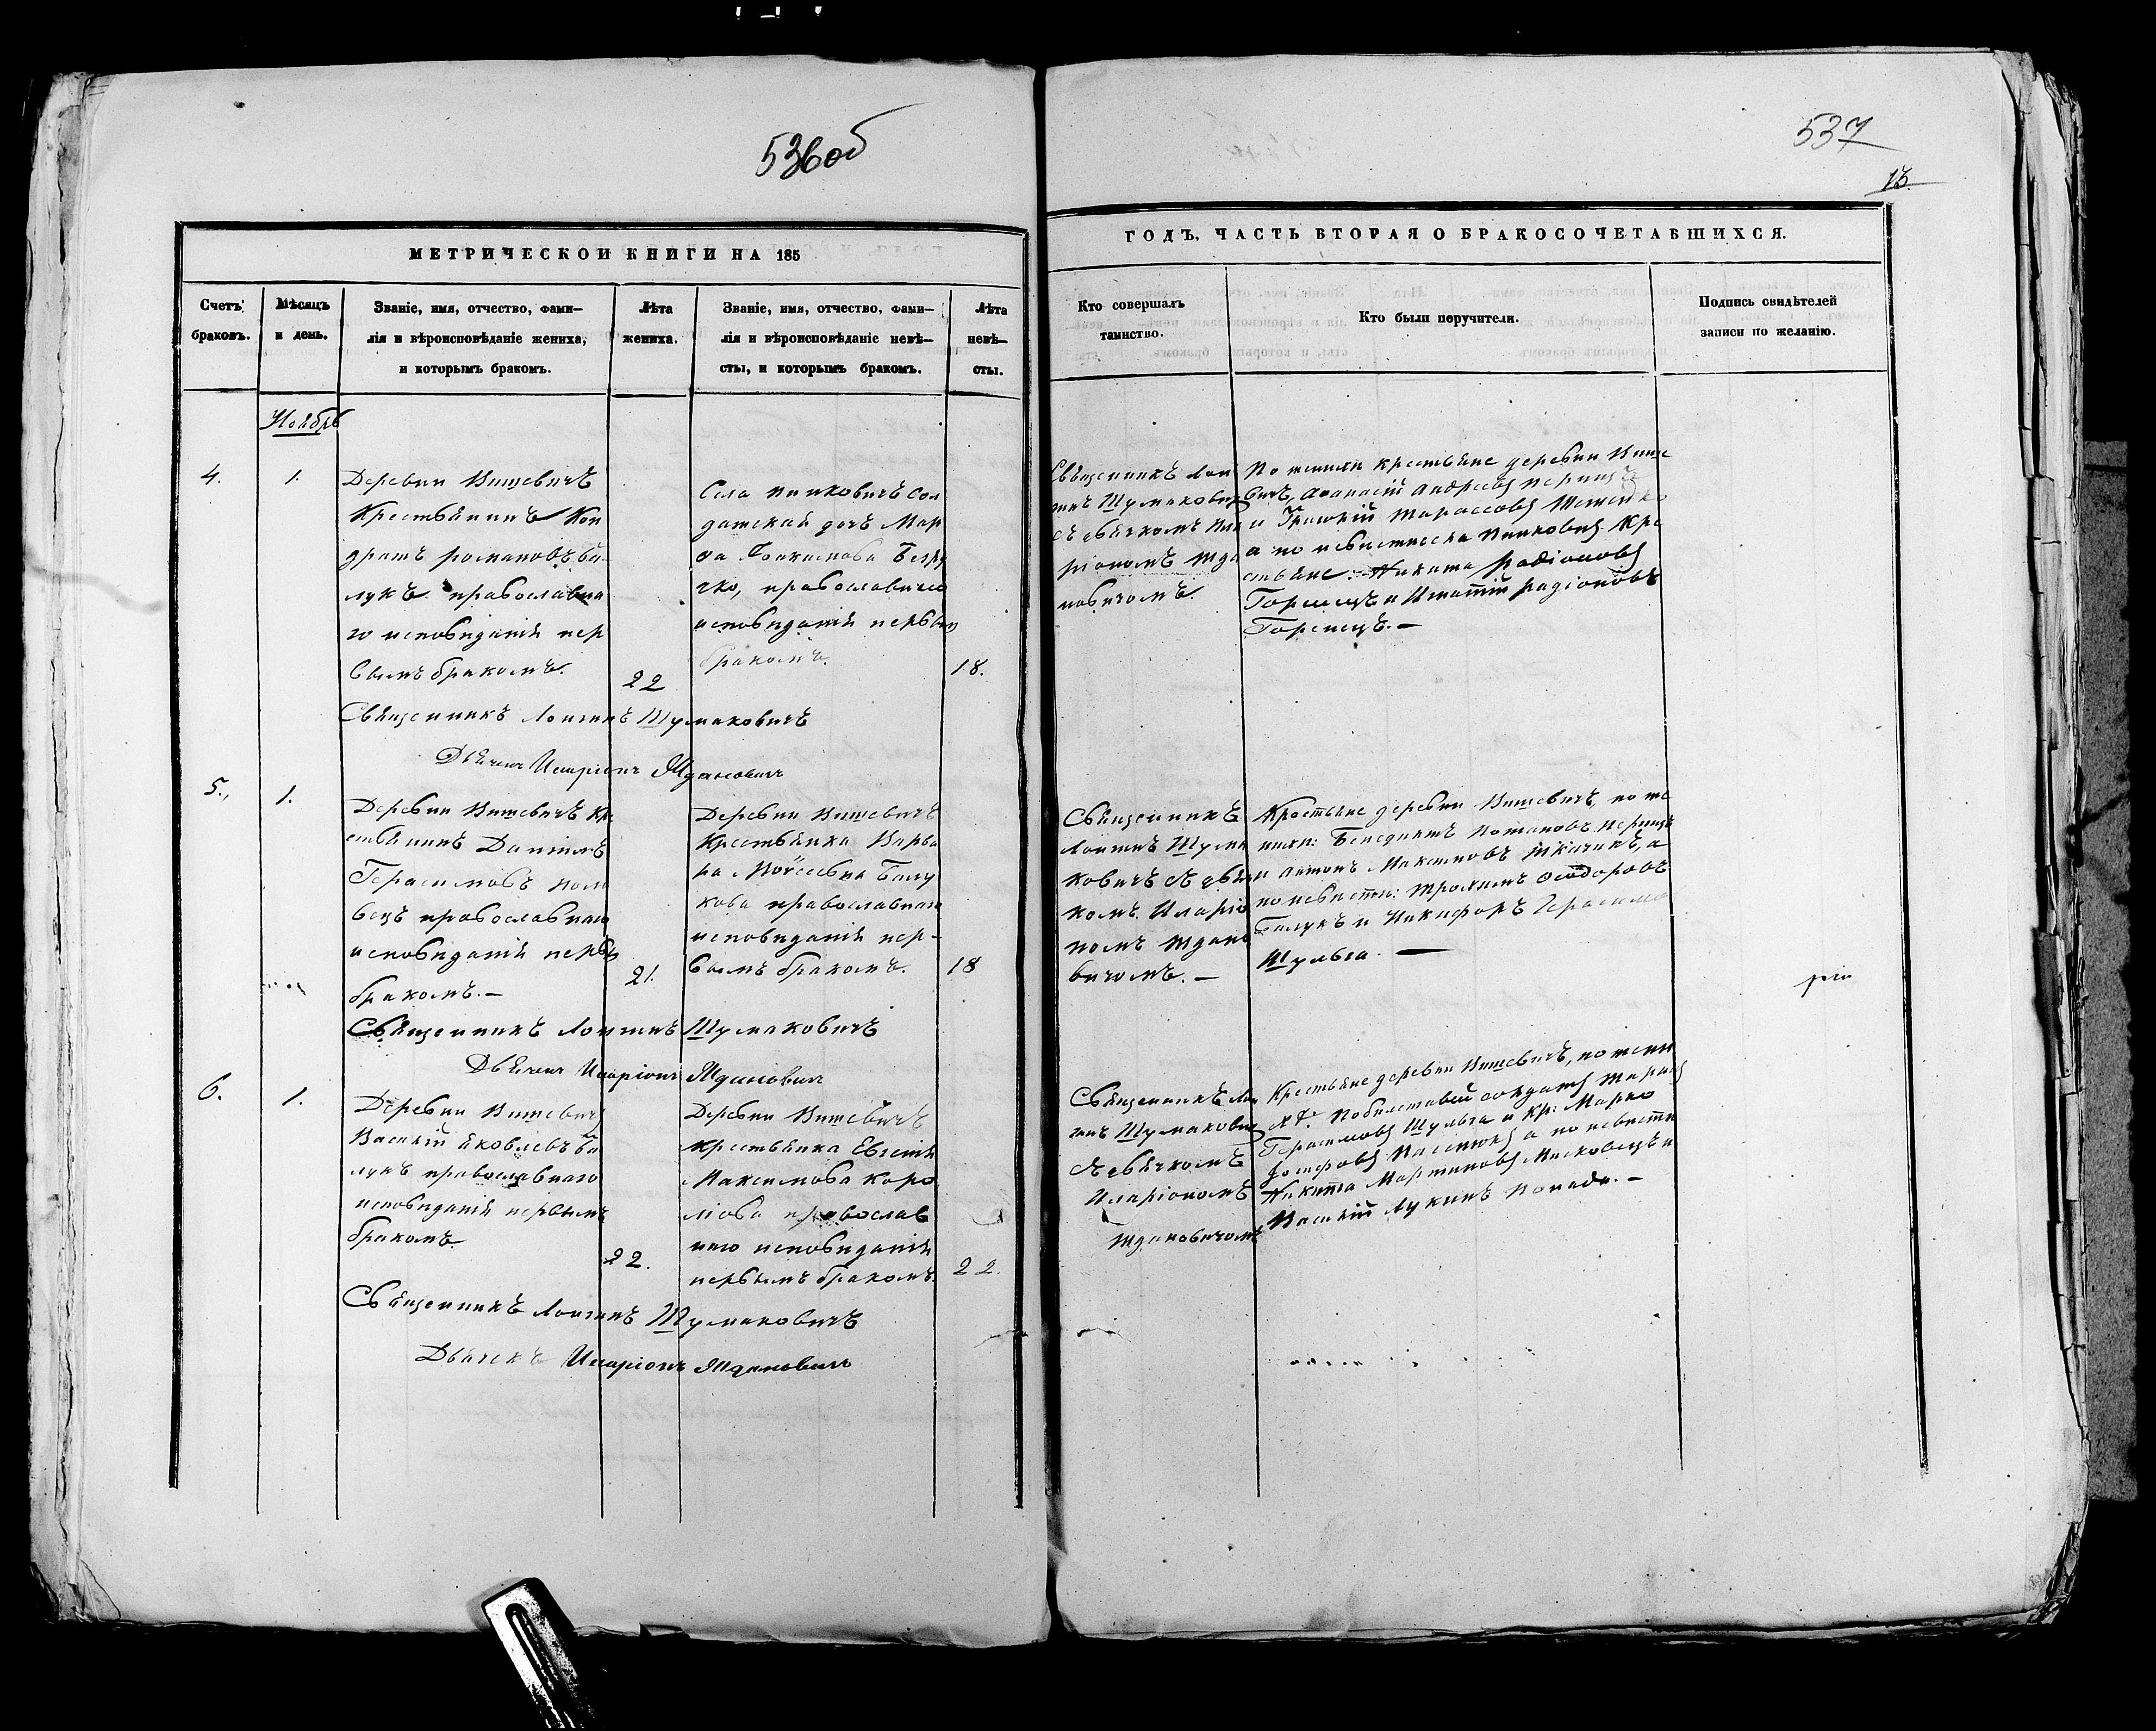 536об
537
13.
МЕТРИЧЕСКОЙ КНИГИ НА 185
ГОДЪ, ЧАСТЬ ВТОРАЯ О БРАКОСОЧЕТАВШИХСЯ.
Счетъ
браковъ.
Мѣсяцъ
и день.
Званіе, имя, отчество, фами-
лія и вѣроисповѣданіе жениха,
и которымъ бракомъ.
Лѣта
жениха.
Званіе, имя, отчество, фами-
лія и вѣроисповѣданіе невѣ-
сты, и которымъ бракомъ.
Лѣта
невѣ-
сты.
Кто совершалъ
таинство.
Кто были поручители.
Подпись свидѣтелей
записи по желанію.
Ноябрь
4.
1.
Деревни Вишевичъ
Крестьянинъ Кон
дратъ Романовъ Ба
лукъ православна
го исповѣданія пер
вымъ бракомъ.
22
Села Пинковичъ Сол
датская дочь Мар
фа
православнаго
исповѣданія первым
бракомъ.
18.
Священникъ Лон
гинъ Шумаковичъ
съ дьячкомъ Ила
ріономъ Жда
новичомъ.
По женихи крестьяне деревни Више
вичъ, Афанасій Андреевъ
и Тарассовъ
а по невѣсти села Пинковичъ Кре
стьяне: Никита Радіоновъ
Горенецъ и Игнатій Радіоновъ
Горенецъ.-
Священникъ Лонгинъ Шумаковичъ
Дьячекъ Иларіонъ Ждановичъ
5.,
1.
Деревни Вишевичъ Кре
стьянинъ Даніилъ
Герасимовъ
православнаго
исповѣданія первы
бракомъ.-
21.
Деревни Вишевичъ
Крестьянка Варва
ра Моѵсеева Балу
кова православнаго
исповѣданія пер-
вымъ бракомъ.
18
Священникъ
Лонгинъ Шума
ковичъ съ дьяч
комъ Иларіо
номъ Ждано
вичомъ.-
Крестьяне деревни Вишевичъ, по же
нихи: Бенедиктъ Потаповъ
и Антонъ Максимовъ Ткачикъ, а
по невѣсти: Трохимъ Ѳеодоровъ
Балукъ и Никифоръ Герасимо
Шульга.-
Священникъ Лонгинъ Шумаковичъ
Дьячекъ Иларіонъ Ждановичъ
6.
1.
Деревни Вишевичъ
Василій Яковлевъ Ба
лукъ православнаго
исповѣданія первымъ
бракомъ
22.
Деревни Вишевичъ
крестьянка Евгенія
Максимова Коро
православ
наго исповѣданія
первымъ бракомъ.
22.
Священникъ Лон
гинъ Шумаковичъ
съ дьячкомъ
Иларіономъ
Ждановичомъ
Крестьяне деревни Вишевичъ, по жени
солдатъ
Герасимовъ Шульга и кр: Марко
Іосифовъ а по невѣсти
Никита Мартиновъ и
Василій Лукинъ
Священникъ Лонгинъ Шумаковичъ
Дьячекъ Иларіонъ Ждановичъ